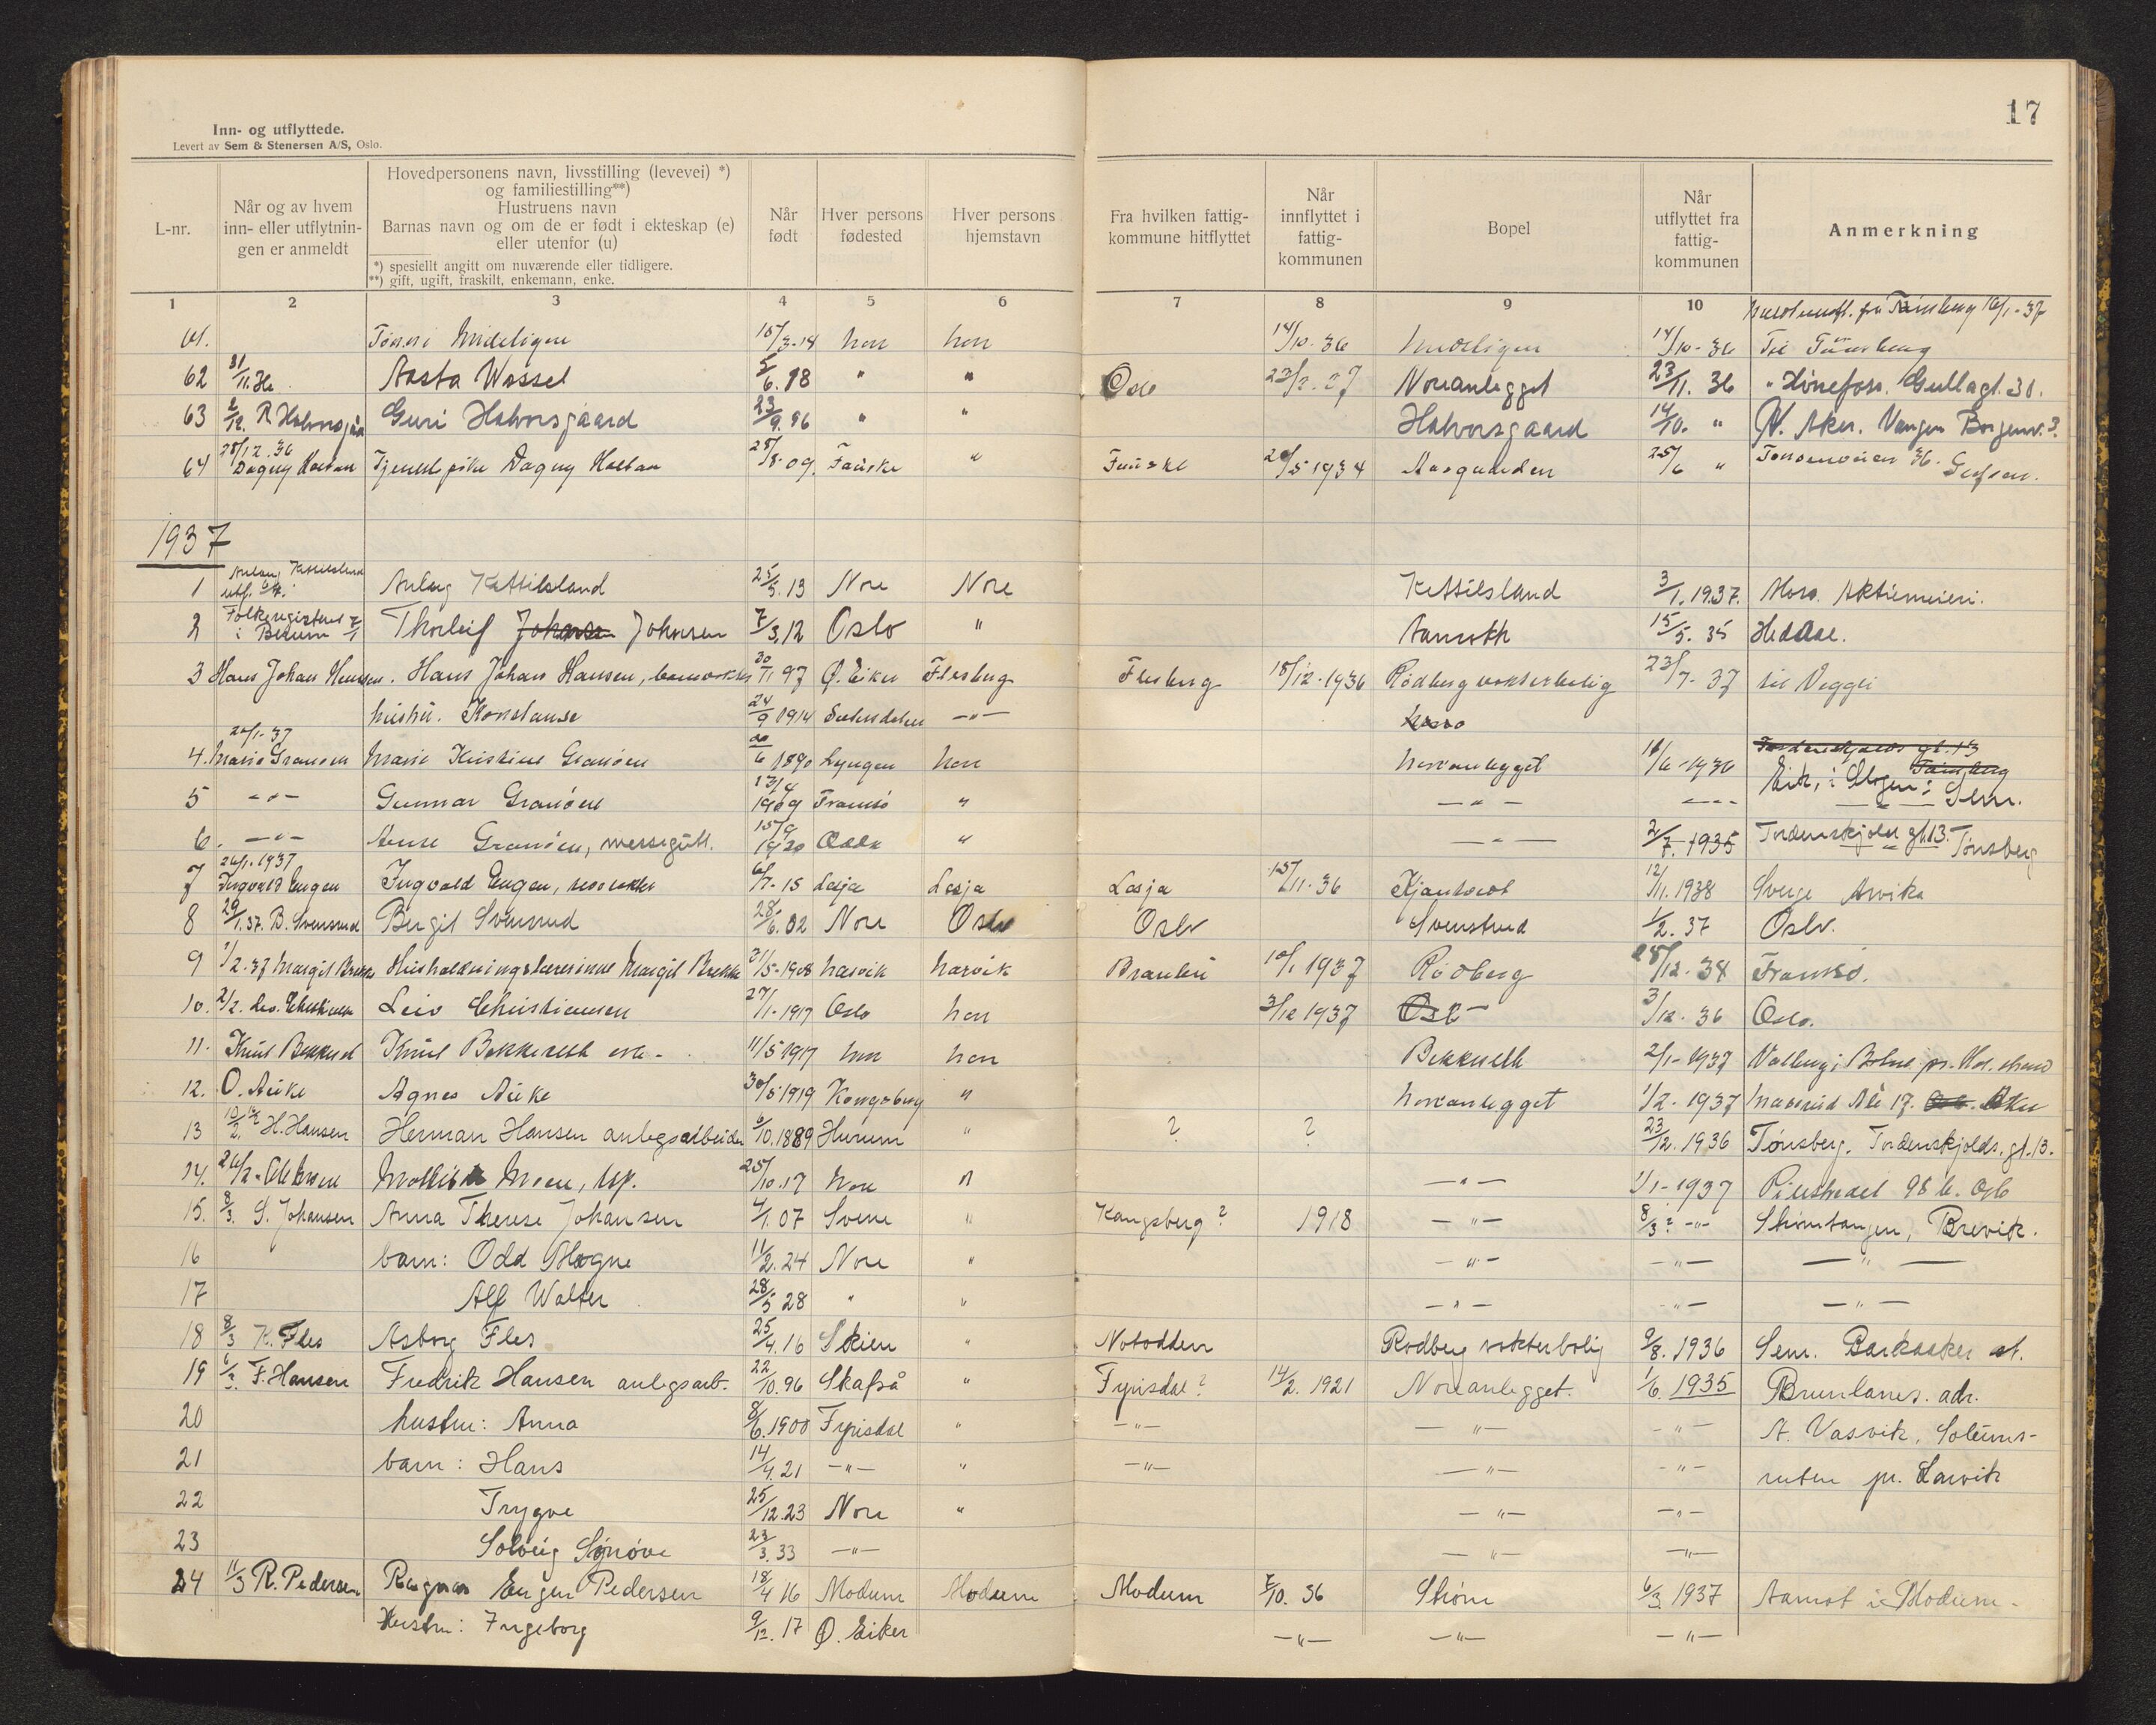 17
Inn- og utflyttede.
Levert av Sem & Stenersen A/S, Oslo.
L-nr. Når og av hvem inn- eller utflytnin- gen er anmeldt
Hovedpersonens navn, livsstilling (levevei) *)
og familiestilling**)
Hustruens navn
Barnas navn og om de er født i ekteskap (e)
eller utenfor (u)
*) spesiellt angitt om nuværende eller tidligere.
**) gift, ugift, fraskilt, enkemann, enke.
Når født Hver persons fødested Hver persons hjemstavn
Fra hvilken fattig- kommune hitflyttet Når innflyttet i fattig- kommunen Bopel Når utflyttet fra fattig- kommunen Anmerkning
1 2 3 4 5 6 7 8 9 10
61. 15/3-18 Nore Nore 14/10-36 14/10-36 Til Tønsberg
62 Aasta Wossel 5/6.18 " " Oslo Noreanlegget 23/11.36 " Hønefoss. Gullagt. 30.
63 2/12. R Halvorsgaa Guri Halvorsgaard 23/9.96 " " Halvorsgaard 14/10. " V. Aker. Vangen Borgenv.?
64 28/12.36 Dagny Holtan Tjenestpike Dagny Holtan 25/8-09. Fauske " Fauske 20/5 1934 25/6 " Tonsenveien 36. Grefsen.
1937
1 Kettilsland Kettilsland 25/5.13 Nore Nore Kettilsland 3/1.1937. Moss Aktiemeieri.
2 Folkeregisteret i Bærum 7/1 Thorleif Johansen Johnsen 7/3.12 Oslo " Aamoth 15/5.35 Heddal.
3 Hans Johan Hansen. Hans Johan Hansen, 30/11 97 Ø. Eiker Flesberg Flesberg 18/12-1936 Rødberg vokterbolig 23/7-37 til Veggli
hustru. Konstanse 24/9 1914 -"-
4. 20/1-37 Marie Granøen Marie Kristine Granøen 6 1890 Lyngen Nore Noreanlegget 16/6-1936 Tordenskjolds gt. 13 Tønsberg Eik, i Slagen i Sem.
5 -"- Gunnar Granøen 13/4 1909 Tromsø " -"- -"- -"-
6. -"- Granøen, messegutt. 15/9 1920 " -"- 2/7.1935 Tordenskjolds gt. 13. Tønsberg
7 26/1.1937 Ingvald Engen Ingvald Engen, 6/7-15 Lesja Lesja Lesja 15/11-36 12/11.1938 Sverge Arvika
8 29/1.37. B. Svensrud Bergit Svensrud 28/6.02 Nore Oslo Oslo Svensrud 1/2.37 Oslo.
9 1/2.37 Margit Brekke Husholdningslærerinne Margit Brekke 31/5-1908 Narvik Narvik Branbu 10/1 1937 Rødberg 28/12.38 Tromsø.
10. 2/2. Leiv Christiansen 27/1-1917 Oslo Nore 3/12 1937 3/12.36 Oslo.
11. Knut Bekkeseth Knut Bekkeseth 11/5 1917 Nore Nore Bekkeseth 2/1-1937
12. O. Auke Agnes Auke 30/5 1919 Kongsberg " Noreanlegget 1/2-1937
13 10/2. H. Hansen Herman Hansen anlegsarbeider 6/10.1889 Hurum " ? ? 23/12.1936 Tønsberg. Tordenskjolds. gt. 13.
14. Moen, 25/10.17 Nore " -"- 1/1-1937 Pilestredet 98 b. Oslo
15. 8/3. S. Johansen Anna Therese Johansen 4/1.07 Svene " Kongsberg? 1918 -"- 8/3? -"- Strømtangen, Brevik.
16 barn: Odd Magne 11/2.24 Nore " -"- -"- -"-
17 Alf Walter 28/5 28 " " -"- -"- -"-
18 8/3 K. Fles Asborg Fles 25/4.16 Skien " Notodden Rødberg vokterbolig 9/8.1936 Sem. Barkaaker st.
19 F. Hansen Fredrik Hansen anlegsarb. 22/10.96 Skafså " Fyrisdal? 14/2.1921 Noreanlegget. 1/6.1935 Brunlanes. adr.
20 hustru: Anna 8/6.1900 Fyrisdal " -"- -"- -"- A. Vasvik, Solums-
21 barn: Hans 14/4.21 -"- " -"- -"- -"- ruten pr. Larvik
22 Trygve 25/12.23 Nore " -"- -"-
23 Solveig Synøve 23/3.33 -"- -"- -"-
24 11/3 R. Pedersen Ragnar Eugen Pedersen 18/4 16 Modum Modum Modum 7/10.36 Strøm 6/3 1937 Aamot i Modum.
Hustru: Ingeborg 9/12.17 Ø. Eiker -"- -"- -"-